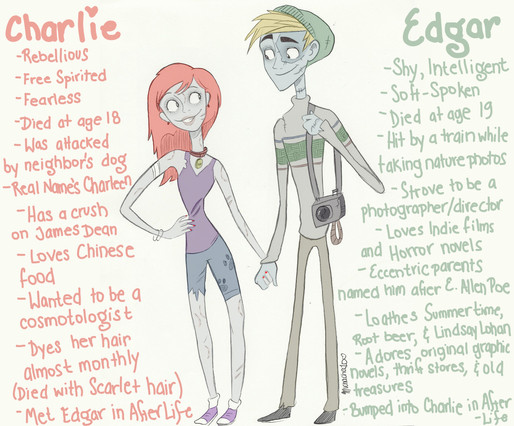 Charlie
-Rebellious
-Free Spirited
-Fearless
-Died at age 18
-Was attacked
by neighbor's dog
-Real Name's Charleen
-Has a crush
on James Dean
-Loves Chinese
food
-Wanted to be a
cosmotologist
-Dyes her hair
almost monthly
(Died with Scarlet hair)
-Met Edgar in AfterLife
Edgar
-Shy, Intelligent
-Soft-Spoken
-Died at age 19
-Hit by a train while
taking nature photos
-Strove to be a
photographer/director
-Loves Indie films
and Horror novels
-Eccentric parents
named him after E. Allen Poe
-Loathes Summertime,
Root beer, & Lindsay Lohan
-Adores original graphic
novels, thrift stores, & old
treasures
-Bumped into Charlie in After
-Life